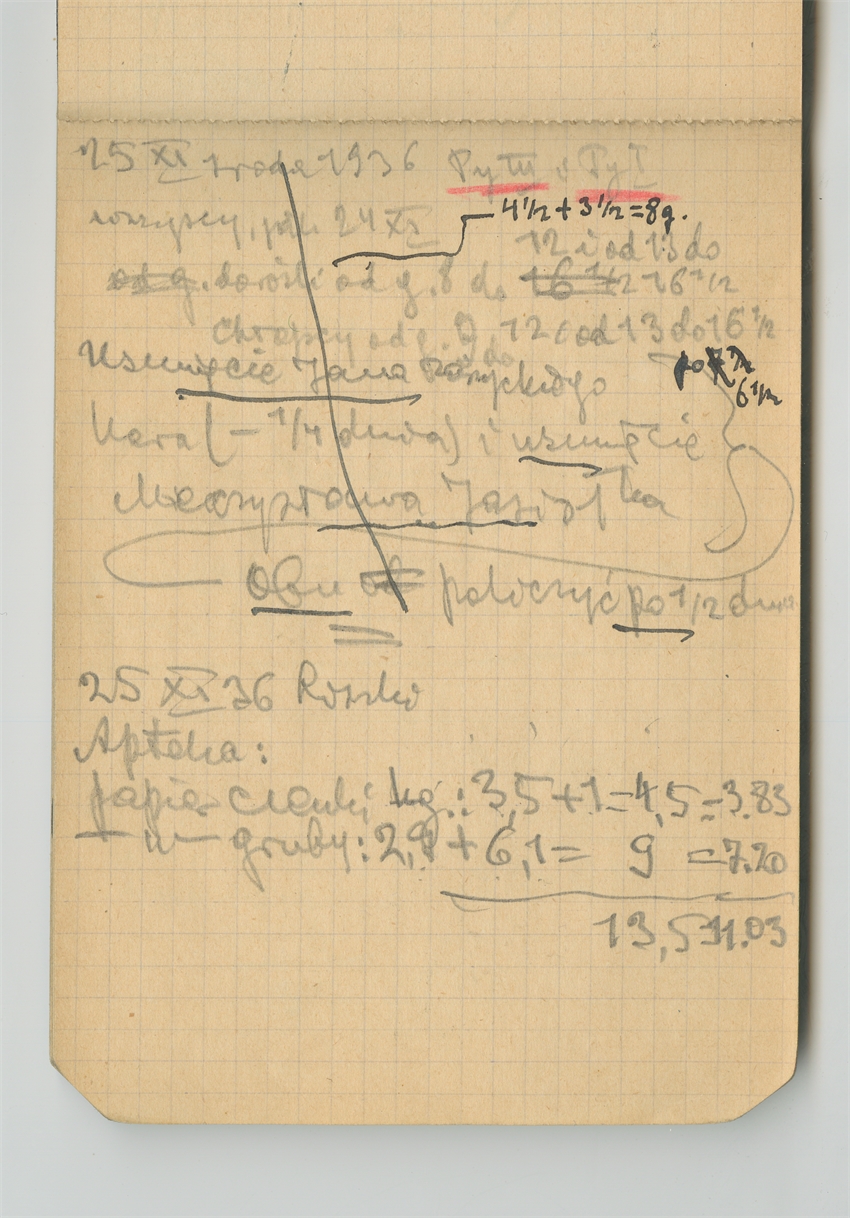 25 XI środa 1936 Py III i Py I
wszyscy, jak 24 XI
4 1/2 + 3 1/2 = 8 g.
12 i od 13 do
od g. dorośli od g. 8 do 16 1/2 16 1/2
Chłopcy od g. 9 do 12 i od 13 do 16 1/2
Usunięcie Jana
po 7 1/2
6 1/2
Kara (- 1/4 dnia) i usunięcie
Mieczysława
Obu policzyć po 1/2 dnia
25 XI 36
Apteka:
papier cienki kg.: 3,5 + 1 = 4,5 = 3.83
— " — gruby: 2,9 + 6,1 = 9 = 7.20
13,5 = 11.03